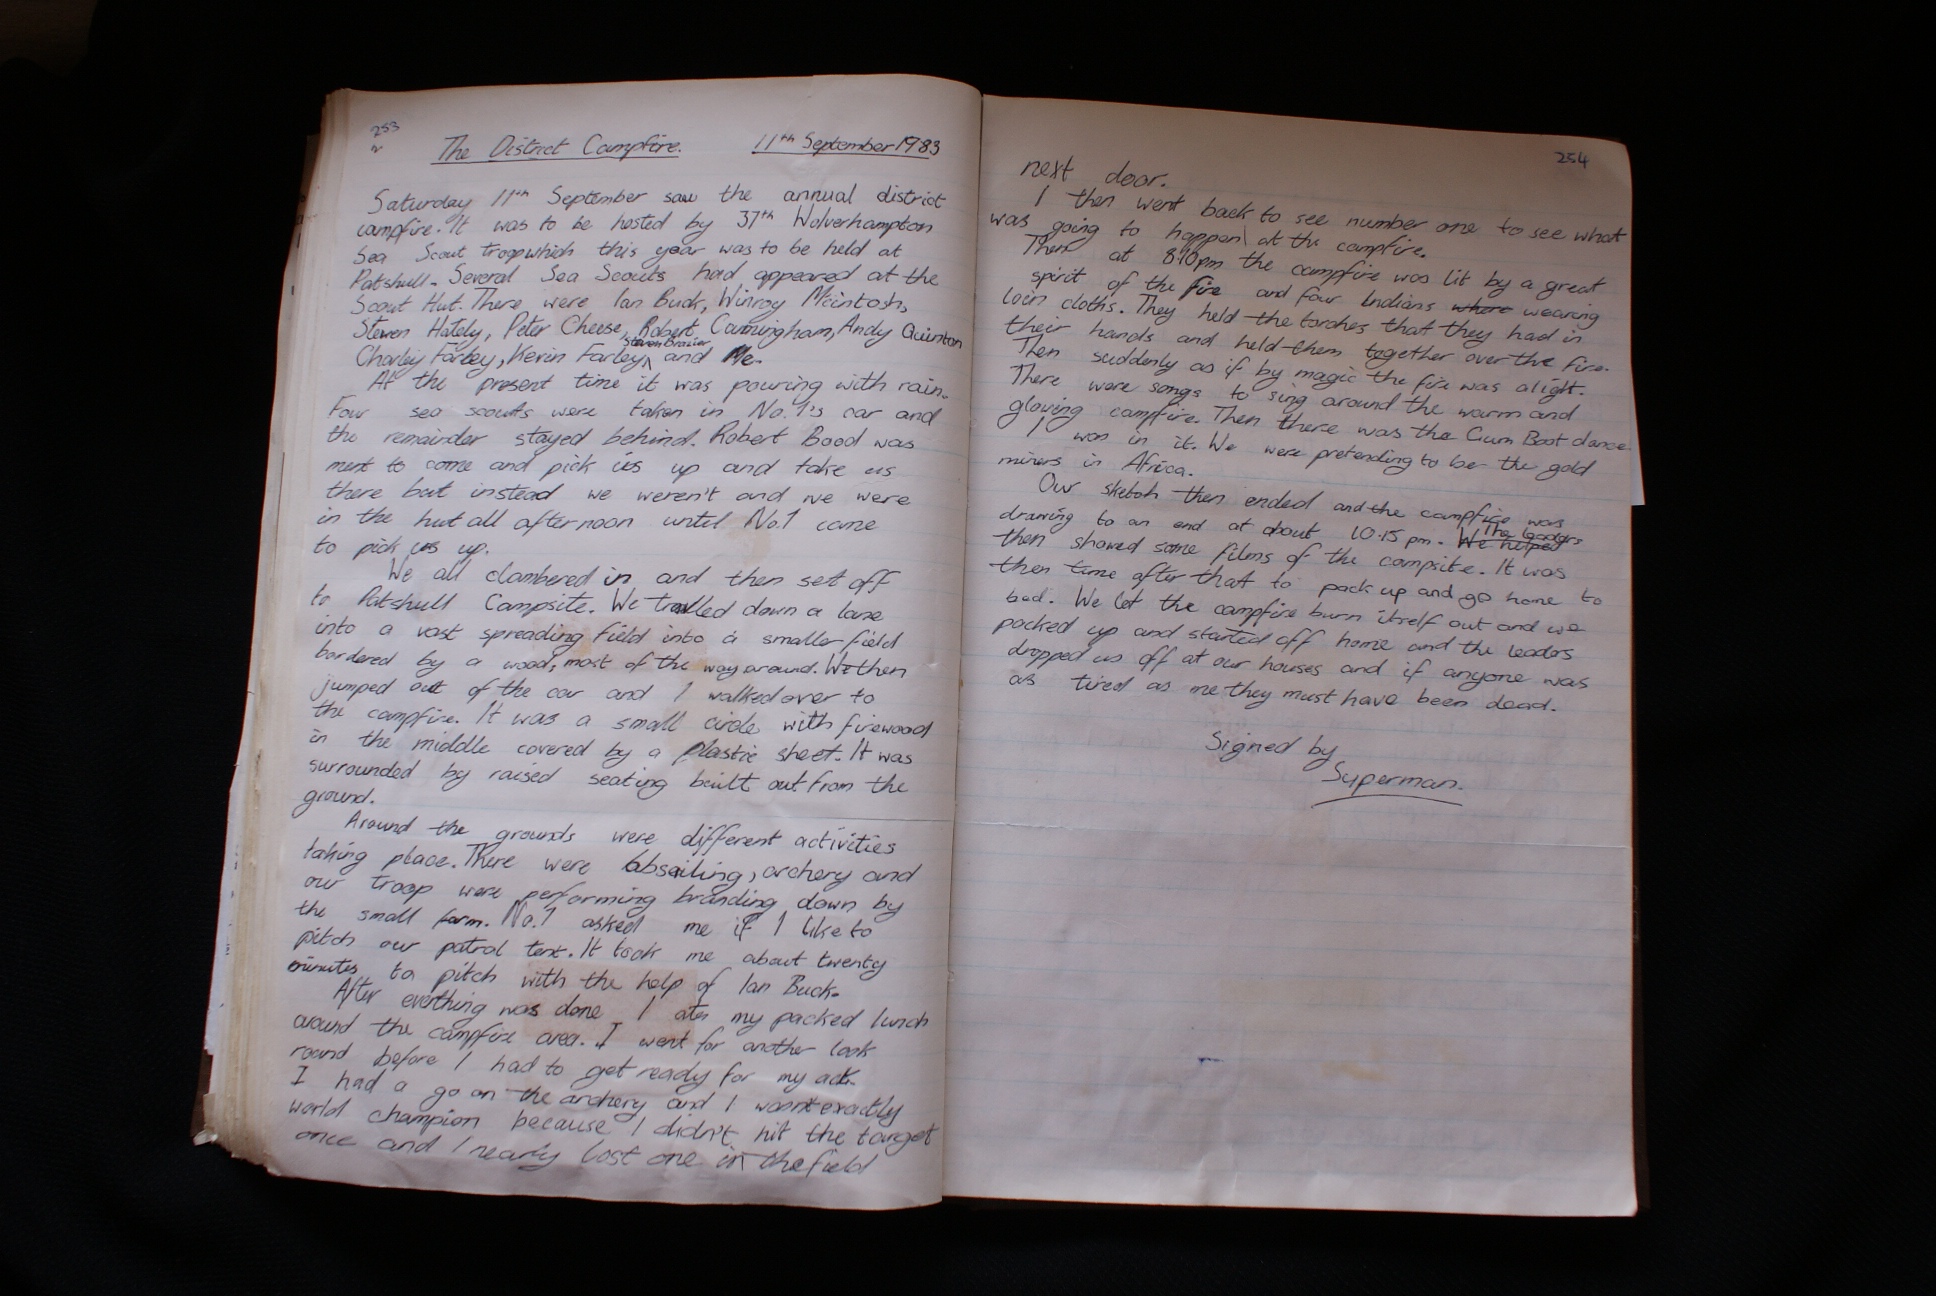 253
The District Campfire. 11th September 1983
Saturday 11th September saw the annual district
campfire. It was to be hosted by 37th Wolverhampton
Sea Scout troop which this year was to be held at
Patshull. Several Sea Scouts had appeared at the
Scout Hut. There were Ian Buck, Winroy Mcintosh,
Steven Hately, Peter Cheese, Robert Cunningham, Andy Quinton
Steven Brazier
Charley Farley, Kevin Farley, and Me.
At the present time it was pouring with rain.
Four sea scouts were taken in No.1's car and
the remainder stayed behind. Robert Bood was
ment to come and pick us up and take us
there but instead we weren't and we were
in the hut all afternoon until No.1 came
to pick us up.
We all clambered in and then set off
to Patshull Campsite. We travelled down a lane
into a vast spreading field into a smaller field
bordered by a wood, most of the way around. We then
jumped out of the car and I walked over to
the campfire. It was a small circle with firewood
in the middle covered by a plastic sheet. It was
surrounded by raised seating built out from the
ground.
Around the grounds were different activities
taking place. There were absailing, archery and
our troop were performing branding down by
the small farm. No.1 asked me if I like to
pitch our patrol tent. It took me about twenty
minutes to pitch with the help of Ian Buck.
After everthing was done I ate my packed lunch
around the campfire area. I went for another look
round before I had to get ready for my act.
I had a go on the archery and I wasn't exactly
world champion because I didn't hit the target
once and I nearly lost one in the field
254
next door.
I then went back to see number one to see what
was going to happen at the campfire.
Then at 8.10pm the campfire was lit by a great
spirit of the fire and four Indians where wearing
loin cloths. They held the torches that they had in
their hands and held them together over the fire.
Then suddenly as if by magic the fire was alight.
There were songs to sing around the warm and
glowing campfire. Then there was the Gum Boot dance
I was in it. We were pretending to be the gold
miners in Africa.
Our sketch then ended and the campfire was
drawing to an end at about 10.15 pm. We helped The leaders
then showed some films of the campsite. It was
then time after that to pack up and go home to
bed. We let the campfire burn itself out and we
packed up and started off home and the leaders
dropped us off at our houses and if anyone was
as tired as me they must have been dead.
Signed by
Superman.